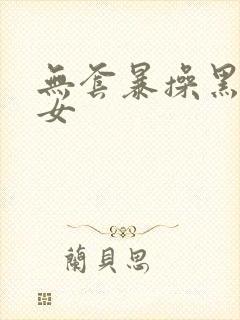 無套暴操黑
女
蘭貝思